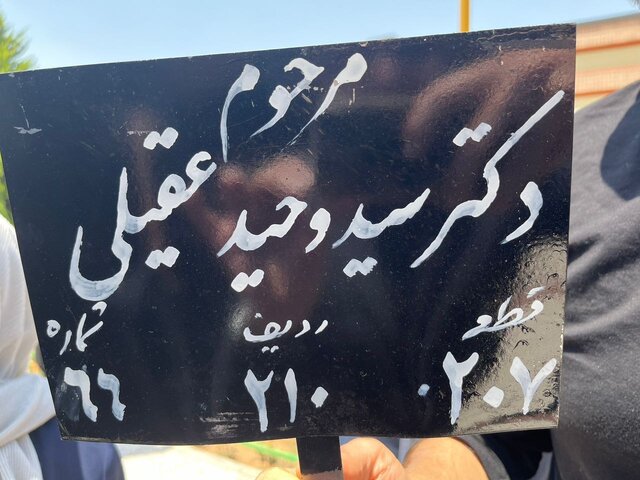 مرحوم
دکتر سید وحید عقیلی
قطعه ردیف شماره
۲۰۷ ۲۱۰ ۶۶